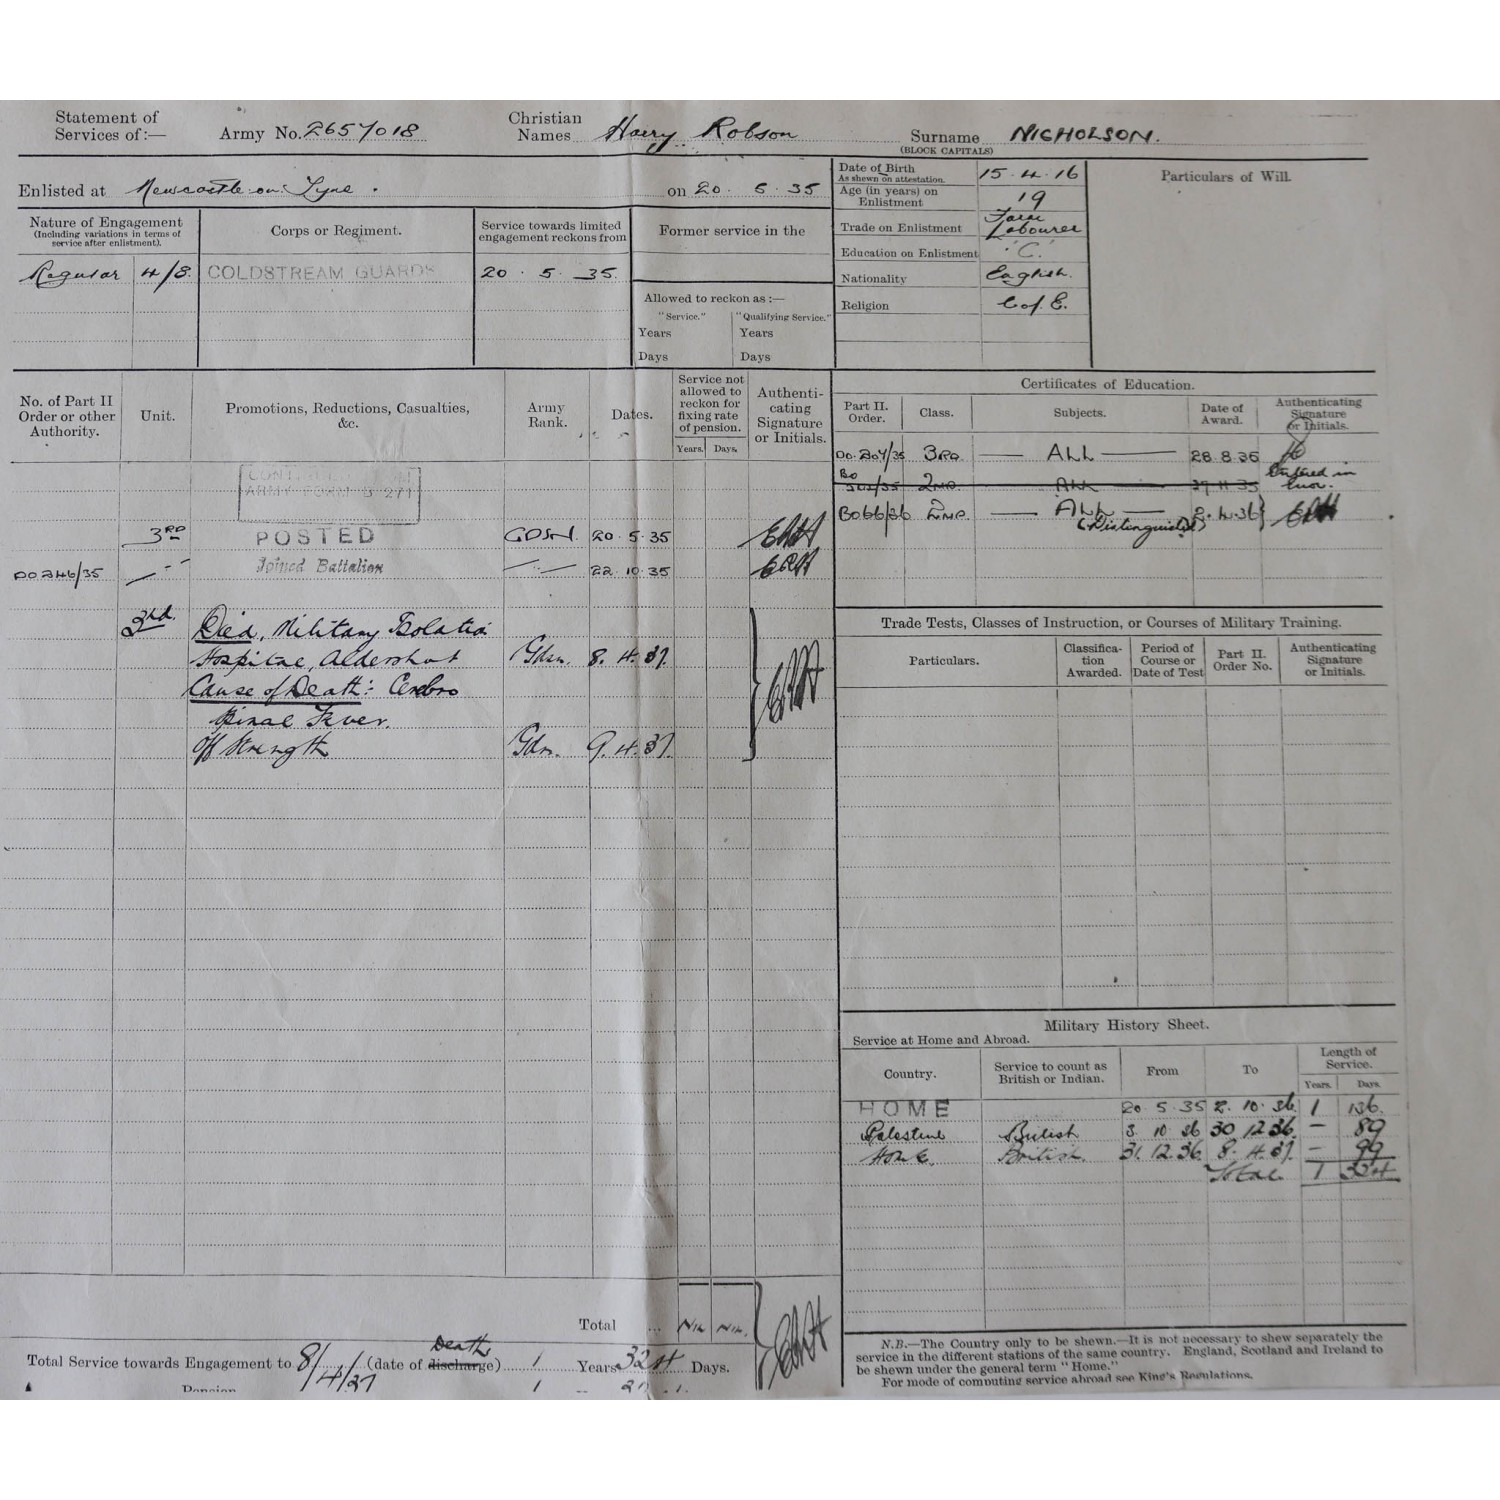 Statement of Services of:— Army No. 2657018 Christian Names Harry Robson Surname NICHOLSON.
(BLOCK CAPITALS)
Enlisted at Newcastle-on-Tyne. on 20. 5. 35
Nature of Engagement
(Including variations in terms of service after enlistment).
Corps or Regiment.
Service towards limited engagement reckons from
Former service in the
Regular 4/8. COLDSTREAM GUARDS 20 . 5 . 35.
Allowed to reckon as :—
"Service." "Qualifying Service."
Years Years
Days Days
Date of Birth
As shewn on attestation. 15.4.16
Age (in years) on Enlistment 19
Trade on Enlistment Farm Labourer
Education on Enlistment 'C'
Nationality English.
Religion C of E.
Particulars of Will.
No. of Part II Order or other Authority.
Unit.
Promotions, Reductions, Casualties, &c.
Army Rank.
Dates.
Service not allowed to reckon for fixing rate of pension.
Years. Days.
Authenticating Signature or Initials.
ARMY FORM B 271
3RD POSTED GDSN. 20.5.35
DO 246/35 Joined Battalion 22.10.35
3rd. Died, Military Isolation
Hospital, Aldershot Gdsn. 8.4.37.
Cause of Death:- Cerebro
Spinal Fever.
Off Strength Gdsn. 9.4.37.
Total ... Nil Nil.
Total Service towards Engagement to 8/4/37 (date of discharge) Death 1 Years 324 Days.
Pension 1
Certificates of Education.
Part II. Order. Class. Subjects. Date of Award. Authenticating Signature or Initials.
DO.207/35 3RD — ALL — 28.8.35
2ND. ALL 27.11.35 Entered in Error.
BO66/36 2ND. — ALL — 2.4.36
(Distinguished)
Trade Tests, Classes of Instruction, or Courses of Military Training.
Particulars. Classification Awarded. Period of Course or Date of Test Part II. Order No. Authenticating Signature or Initials.
Military History Sheet.
Service at Home and Abroad.
Country. Service to count as British or Indian. From To Length of Service.
Years. Days.
HOME 20.5.35 2.10.36. 1 136.
Palestine British 3.10.36 30.12.36. — 89
HOME British. 31.12.36. 8.4.37. — 99
Total 1 324
N.B.—The Country only to be shewn.—It is not necessary to shew separately the
service in the different stations of the same country. England, Scotland and Ireland to
be shewn under the general term "Home."
For mode of computing service abroad see King's Regulations.